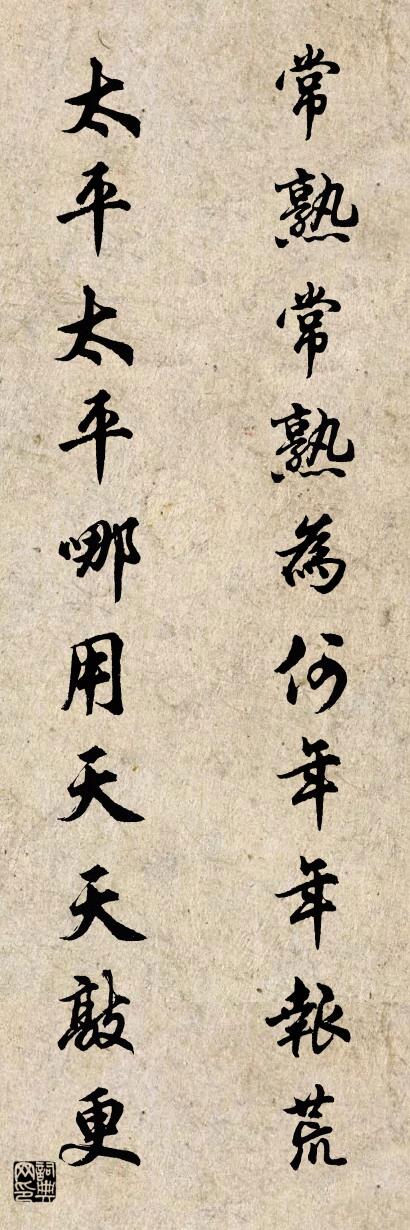 常熟常熟為何年年報荒
太平太平哪用天天敲更
詞典网印